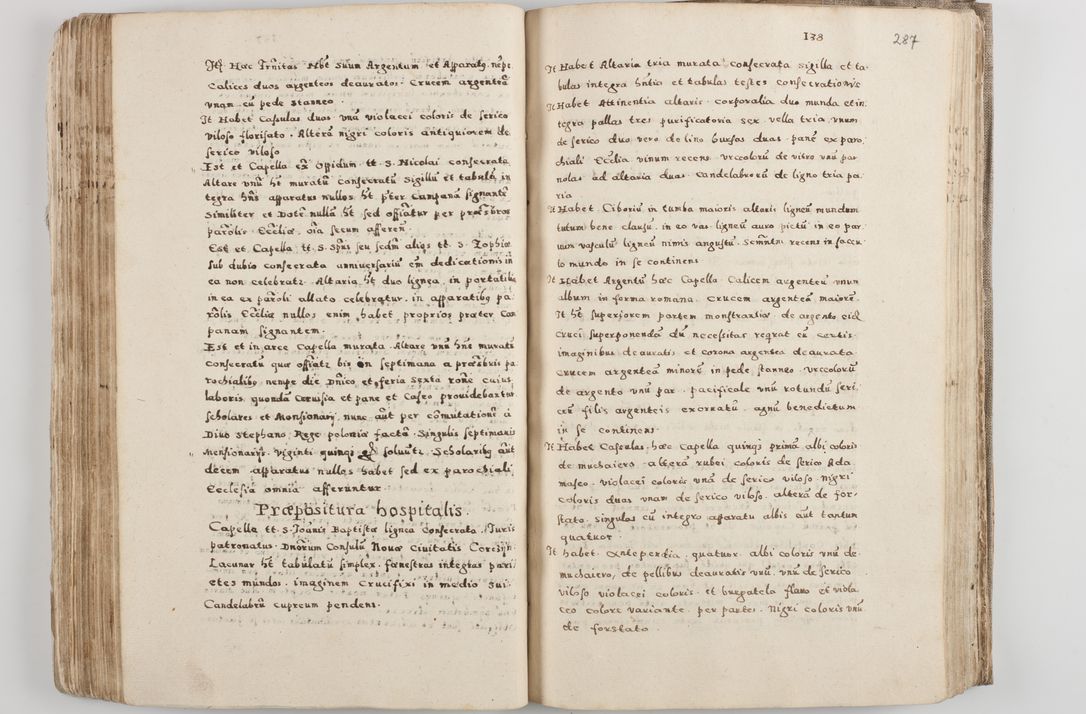 Itē Hæc Trn̄itas hēt suum Argentum et Apparatū nēpe
Calices duos argenteos deauratos. Crucem argenteā
vnam cū pede stanneo.
It Habet Casulas duas vnā violacei coloris de serico
viloso florisato. Alterā nigri coloris antiquiorem de
serico viloso
Est et Capella ex̄ Oppidum tt. S. Nicolai consecrata
Altare vnū ht̄ muratū Consecratū Sigillū et tabulā in
tegra hn̄s apparatus nullos ht̄ pter Campanā signantē
Similiter et Dotē nullā ht̄ sed offiātur per præsb̄ros
parōlis Eccliæ, oīa secum afferen̄
Est et Capella tt. S. Spūs seu sedm̄ alios tt S. Zophiæ
sub dubio consecrata anniversariū em̄ dedicationis in
ea non celebratz. Altaria ht̄ duo lignea, in portatili
in ea ex parōli allato celebratur, in apparatibq pa
rōlis Eccliæ nullos enim habet proprios præter Cam
panam signantem.
Est et in arce Capella murata. Altare vnū hn̄s muratū
Consecratū quæ offiātz bis in septimana a præsbris pa
rochialibq nempe die Dn̄ico et feria sexta rōne cuius
laboris quondā Cæruisia et pane et Caseo prouidebantur
scholares et Monsionarij nunc aūt per cōmutationē á
Diuo Stephano Rege poloniæ factā. Singulis septimanis
Mensionarijs viginti quinqs solvūtz. Scholaribq aūt
decem apparatus nullos habet sed ex parochiali
Ecclesia omnia afferuntur
Præpositura hospitalis.
Capella tt. S. Joānis Baptistæ lignea Consecrata. Juris
patronatus Dnōrum Consulū Nouæ ciuitatis Corczÿn.
Lacunar ht̄ tabulatū simplex. fænestras integras pari
etes mundos. imaginem Crucifixi in medio sui.
Candelabrū cupreum pendens.
138
287
It Habet Altaria tria murata consecrata sigilla et ta
bulas integra hn̄tia et tabulas testes consecrationis
It Habet Attinentia altaris. Corporalia duo munda et in
tegra pallas tres purificatoria sex vella tria vnum
de serico duo vero de lino bursas duas. panē ex paro
chiali Ecclīa vinum recens. vrceolorū de vitro vnū par
nolas ad altaria duas Candelabrorū de ligno tria pa
ria
It Habet Ciboriū in tumba maioris altaris ligneū mundum
tutum bene clausū. in eo vas ligneū auro pictū in eo par
uum vasculū ligneū nimis angustū. Semn̄tm̄ recens in saccu
lo mundo in se continens
It Habet Argentū hæc Capella Calicem argenteū vnum
album in forma romana. Crucem argenteā maiorē.
It ht̄ superiorem partem monstrantiæ de argento eid
cruci superponendā dū necessitas reqrat cū certis
imaginibus deauratis et corona argentea deaurata
crucem argenteā minorē in pede stanneo. vrceolorū
de argento vnū par. pacificale vnū rotundū seri
ceū filis argenteis exornatū. agnū benedictum
in se continens
It Habet Capsulas hæc Capella quinqs primā albi coloris
de muchaiero alterā rubei coloris de serico Ada
masco. violacei coloris vnā de serico viloso. nigri
coloris duas vnam de serico viloso. alterā de for
stato. singulas cū integro apparatu albis aūt tantum
quatuor.
It habet. Antependia. quatuor. albi coloris vnū de
muchaiero, de pellibus deauratis vnū. vnū de serico
viloso violacei coloris. et bregatela flauo et viola
ceo colore variante per partes. Nigri coloris vnū
de forstato.